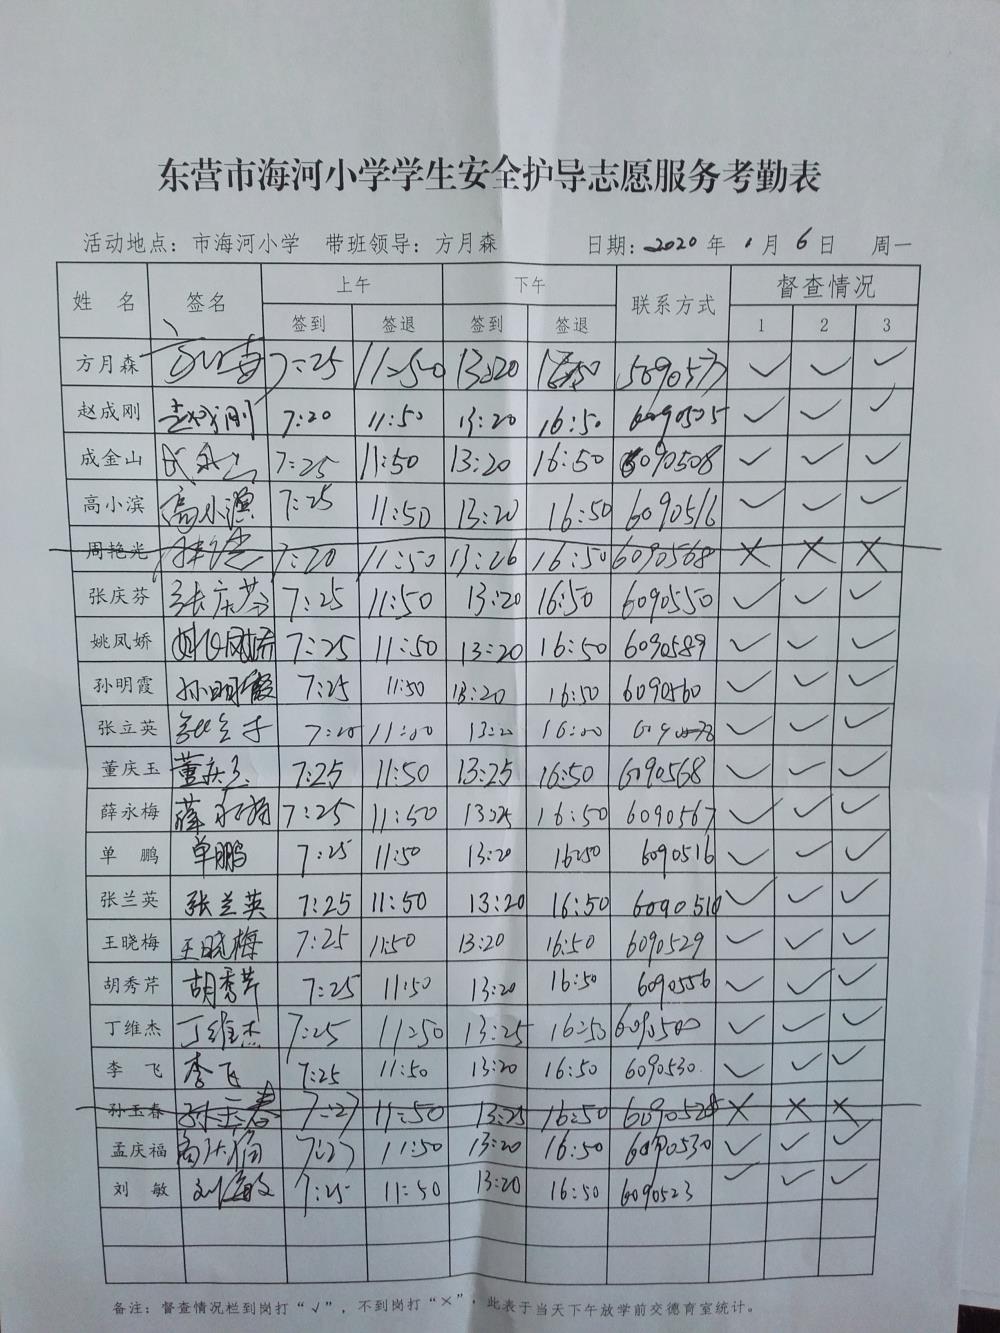 东营市海河小学学生安全护导志愿服务考勤表
活动地点：市海河小学 带班领导：方月森 日期：2020 年 1 月 6 日 周一
姓 名 签名 上午 下午 联系方式 督查情况
签到 签退 签到 签退 1 2 3
方月森 7:25 11:50 13:20 ✓ ✓ ✓
赵成刚 赵成刚 7:20 11:50 13:20 16:50 6090505 ✓ ✓ ✓
成金山 7:25 11:50 13:20 16:50 6090508 ✓ ✓ ✓
高小滨 高小滨 7:25 11:50 13:20 16:50 6090516 ✓ ✓ ✓
周艳光 7:20 11:50 13:26 16:50 6090568 × × ×
张庆芬 张庆芬 7:25 11:50 13:20 16:50 6090550 ✓ ✓ ✓
姚凤娇 姚凤娇 7:25 11:50 13:20 16:50 6090589 ✓ ✓ ✓
孙明霞 孙明霞 7:25 11:50 13:20 16:50 6090560 ✓ ✓ ✓
张立英 11:00 16:00 ✓ ✓ ✓
董庆玉 董庆玉 7:25 11:50 13:25 16:50 6090568 ✓ ✓ ✓
薛永梅 薛永梅 7:25 11:50 13:25 16:50 6090567 ✓ ✓ ✓
单 鹏 单鹏 7:25 11:50 13:20 16:50 6090516 ✓ ✓ ✓
张兰英 张兰英 7:25 11:50 13:20 16:50 6090510 ✓ ✓ ✓
王晓梅 王晓梅 7:25 11:50 13:20 16:50 6090529 ✓ ✓ ✓
胡秀芹 胡秀芹 7:25 11:50 13:20 16:50 6090556 ✓ ✓ ✓
丁维杰 丁维杰 7:25 11:50 13:25 16:50 6090500 ✓ ✓ ✓
李 飞 李飞 7:25 11:50 13:20 16:50 6090530 ✓ ✓ ✓
孙玉春 孙玉春 7:27 11:50 13:25 16:50 6090528 × × ×
孟庆福 7:27 11:50 13:20 16:50 6090530 ✓ ✓ ✓
刘 敏 刘敏 7:25 11:50 13:20 16:50 6090523 ✓ ✓ ✓
备注：督查情况栏到岗打“√”，不到岗打“×”，此表于当天下午放学前交德育室统计。